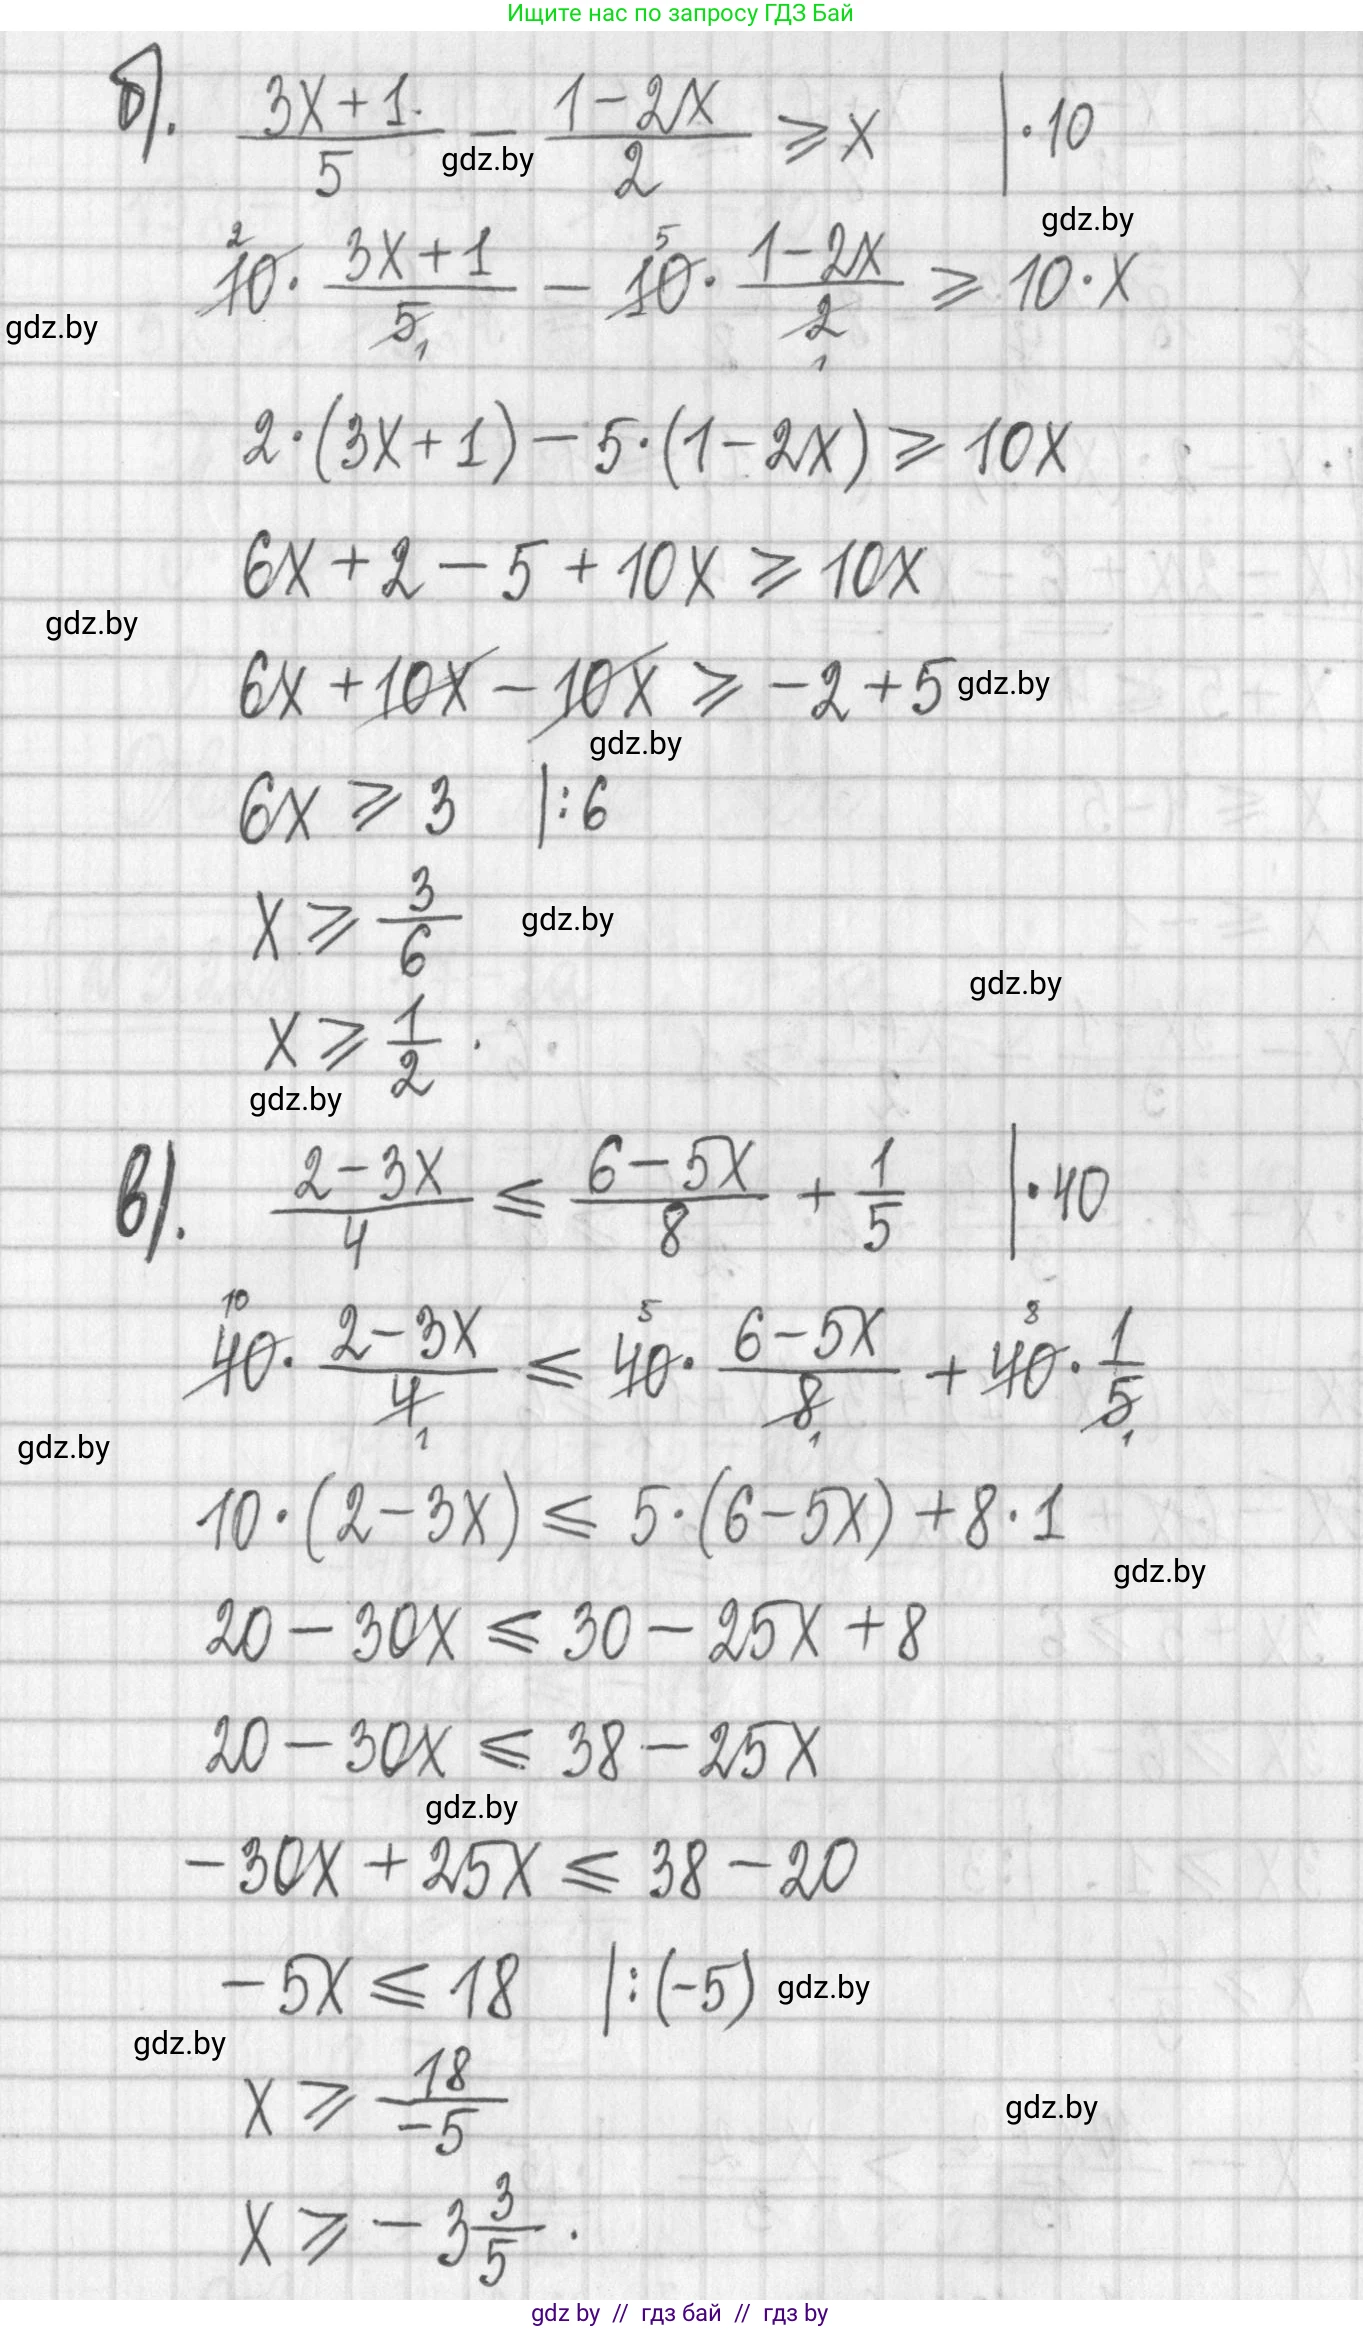 Ищите нас по запросу ГДЗ Бай
б). (3x+1)/5 - (1-2x)/2 ⩾ x |·10
gdz.by
gdz.by
10² · (3x+1)/5₁ - 10⁵ · (1-2x)/2₁ ⩾ 10·x
gdz.by
2·(3x+1) - 5·(1-2x) ⩾ 10x
6x + 2 - 5 + 10x ⩾ 10x
gdz.by
6x + 10x - 10x ⩾ -2 + 5
gdz.by
gdz.by
6x ⩾ 3 |:6
x ⩾ 3/6
gdz.by
gdz.by
x ⩾ 1/2.
gdz.by
в). (2-3x)/4 ⩽ (6-5x)/8 + 1/5 |·40
40¹⁰ · (2-3x)/4₁ ⩽ 40⁵ · (6-5x)/8₁ + 40⁸ · 1/5₁
gdz.by
10·(2-3x) ⩽ 5·(6-5x) + 8·1
gdz.by
20 - 30x ⩽ 30 - 25x + 8
20 - 30x ⩽ 38 - 25x
gdz.by
-30x + 25x ⩽ 38 - 20
-5x ⩽ 18 |:(-5)
gdz.by
gdz.by
x ⩾ 18/-5
gdz.by
x ⩾ -3 3/5.
gdz by // гдз бай // гдз by